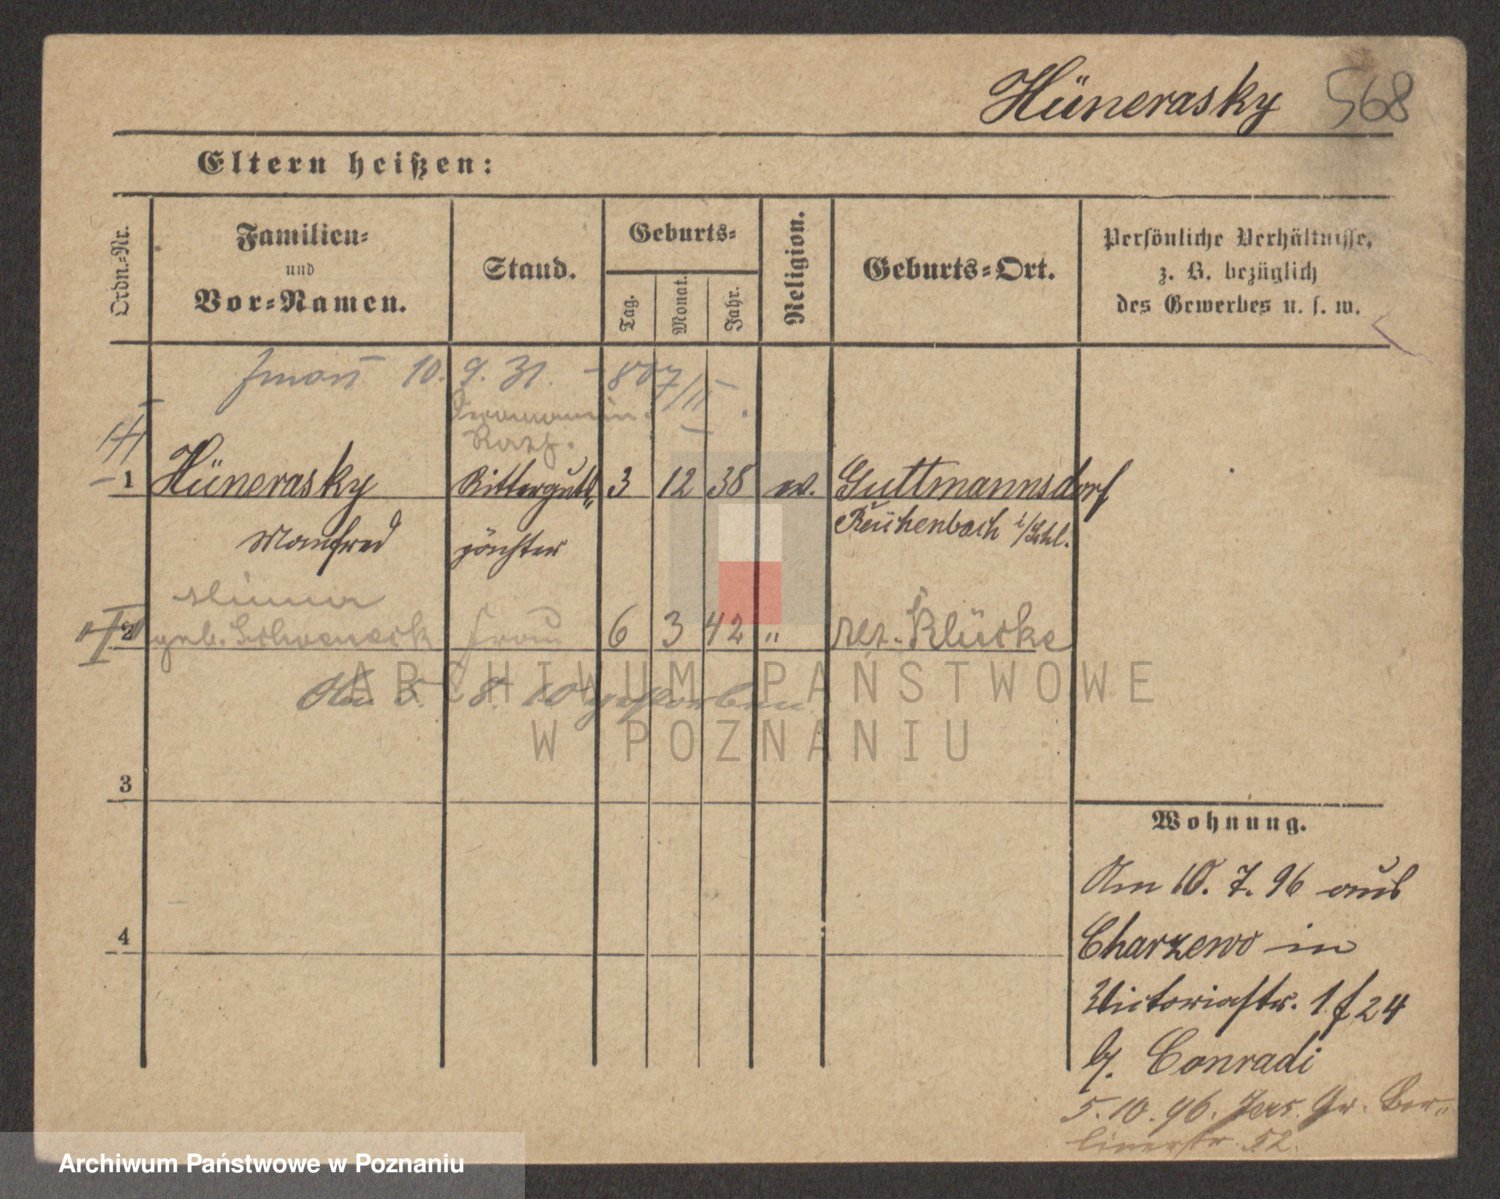 Hünerasky 568
Eltern heißen:
Ordn.-Nr.
Familien-
und
Vor-Namen.
Stand.
Geburts-
Tag.
Monat.
Jahr.
Religion.
Geburts-Ort.
Persönliche Verhältnisse,
z. B. bezüglich
des Gewerbes u. s. w.
10. 9. 31.
1 Hünerasky Ritterguts 3 12 38 ev. Guttmannsdorf
Manfred pächter Reichenbach i/Schl.
2 geb. Schoeneck Frau 6 3 42 " Klücke
5. 8. 10 gestorben
3
4
Wohnung.
Am 10. 7. 96 aus
Charzewo in
Victoriastr. 1 f 24
b. Conradi
5. 10. 96. Jers. Gr. Ber-
linerstr. 52.
ARCHIWUM PAŃSTWOWE
W POZNANIU
Archiwum Państwowe w Poznaniu